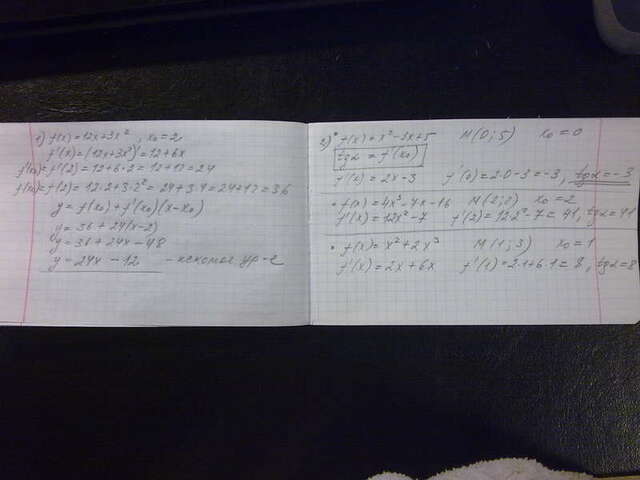 1) f(x)=12x+3x², x₀=2
f'(x)=(12x+3x²)'=12+6x
f'(x₀)=f'(2)=12+6·2=12+12=24
f(x₀)=f(2)=12·2+3·2²=24+3·4=24+12=36
y=f(x₀)+f'(x₀)(x-x₀)
y=36+24(x-2)
y=36+24x-48
y=24x-12 - искомое ур-е
2) • f(x)=x²-3x+5 M(0;5) x₀=0
tgα=f'(x₀)
f'(x)=2x-3 f'(0)=2·0-3=-3, tgα=-3
• f(x)=4x³-7x-16 M(2;2) x₀=2
f'(x)=12x²-7 f'(2)=12·2²-7=41, tgα=41
• f(x)=x²+2x³ M(1;3) x₀=1
f'(x)=2x+6x f'(1)=2·1+6·1=8, tgα=8